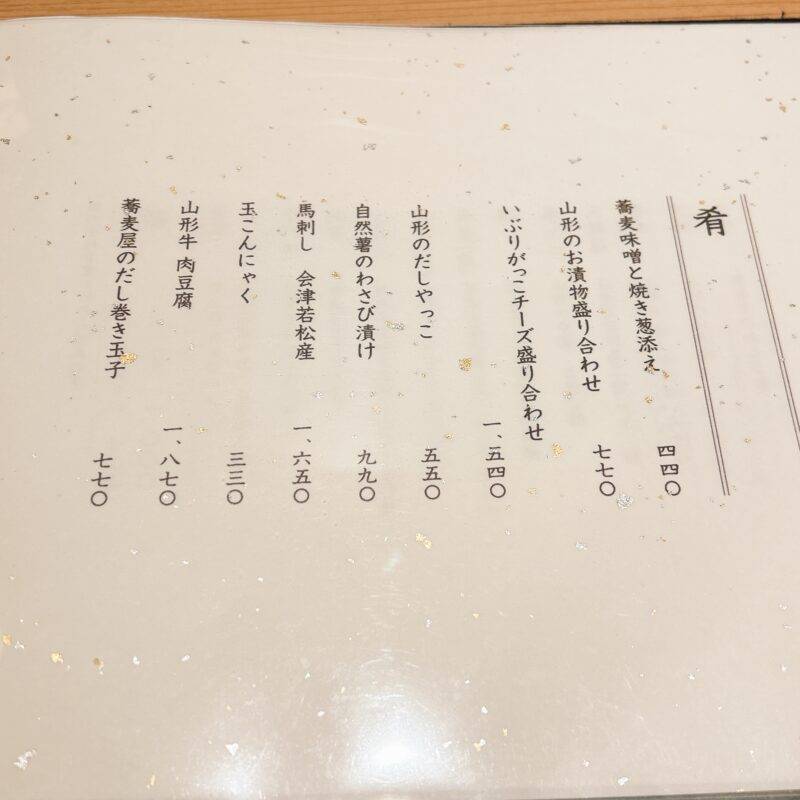 肴
蕎麦味噌と焼き葱添え 四四〇
山形のお漬物盛り合わせ 七七〇
いぶりがっこチーズ盛り合わせ 一、五四〇
山形のだしやっこ 五五〇
自然薯のわさび漬け 九九〇
馬刺し 会津若松産 一、六五〇
玉こんにゃく 三三〇
山形牛 肉豆腐 一、八七〇
蕎麦屋のだし巻き玉子 七七〇